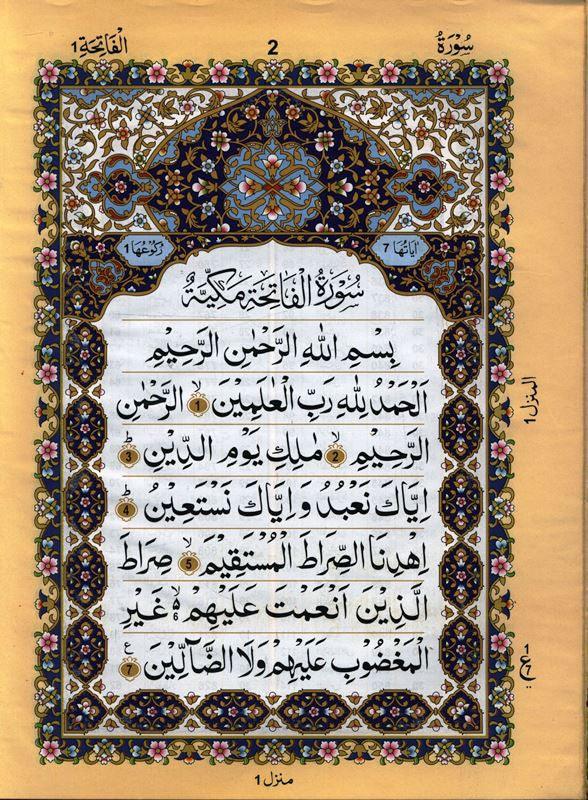 سُوْرَةُ 2 اَلْفَاتِحَة 1
اٰيَاتُهَا 7 رُكُوْعُهَا 1
سُوْرَةُ الْفَاتِحَةِ مَكِّيَّةٌ
بِسْمِ اللّٰهِ الرَّحْمٰنِ الرَّحِيْمِ
اَلْحَمْدُ لِلّٰهِ رَبِّ الْعٰلَمِيْنَ ۙ 1 الرَّحْمٰنِ
الرَّحِيْمِ ۙ 2 مٰلِكِ يَوْمِ الدِّيْنِ ؕ 3
اِيَّاكَ نَعْبُدُ وَ اِيَّاكَ نَسْتَعِيْنُ ؕ 4
اِهْدِنَا الصِّرَاطَ الْمُسْتَقِيْمَ ۙ 5 صِرَاطَ
الَّذِيْنَ اَنْعَمْتَ عَلَيْهِمْ ۙ ۶ غَيْرِ
الْمَغْضُوْبِ عَلَيْهِمْ وَلَا الضَّآلِّيْنَ ع 7
المنزل 1
1 ع 7
منزل 1